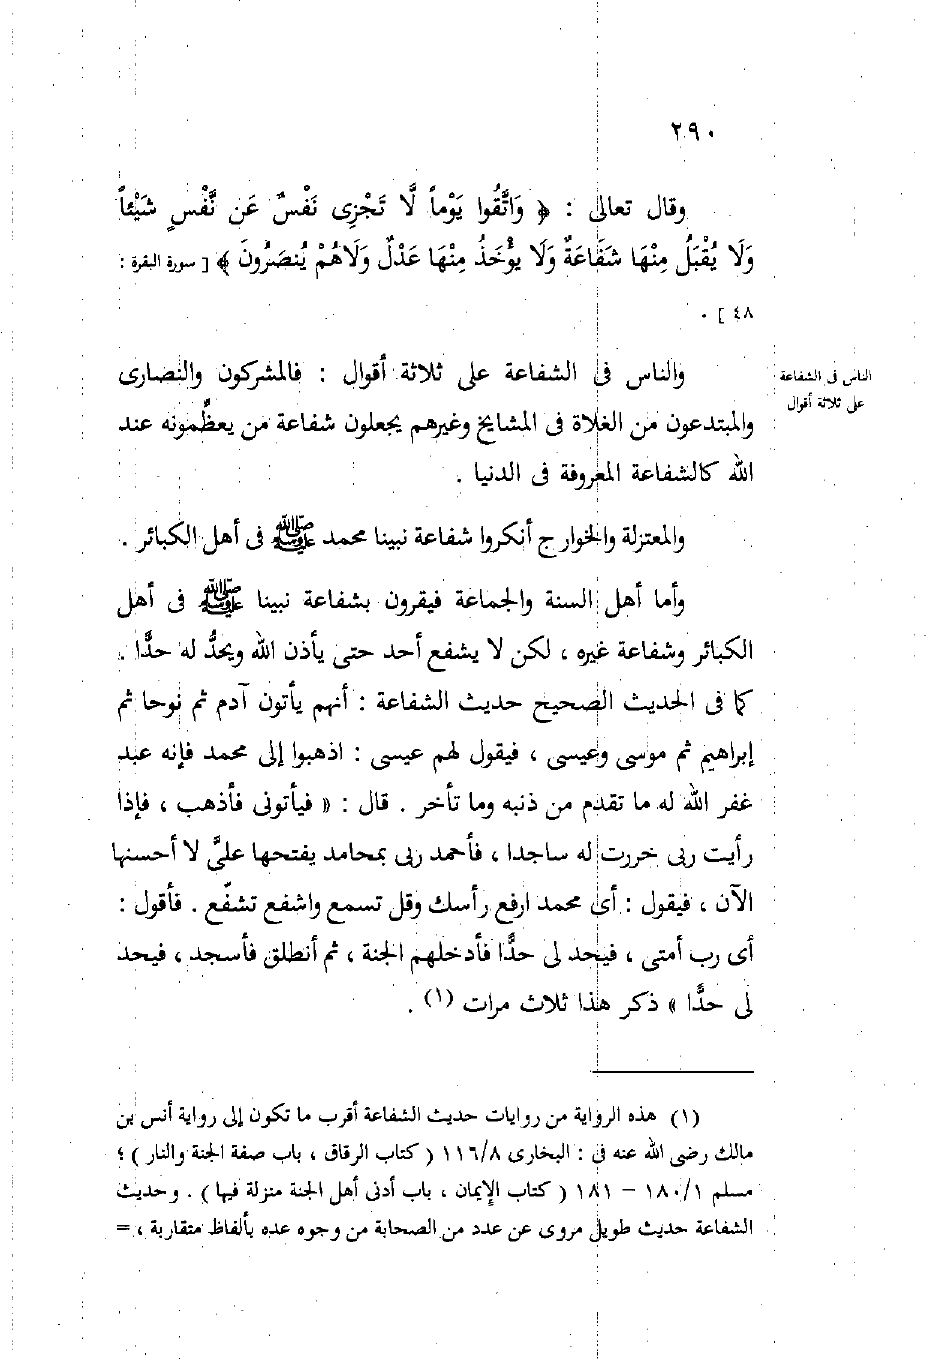 ٢٩٠
وقال تعالى : ﴿ وَاتَّقُوا يَوْماً لَّا تَجْزِى نَفْسٌ عَن نَّفْسٍ شَيْئاً
وَلَا يُقْبَلُ مِنْهَا شَفَاعَةٌ وَلَا يُؤْخَذُ مِنْهَا عَدْلٌ وَلَاهُمْ يُنصَرُونَ ﴾ [ سورة البقرة :
٤٨ ] .
الناس فى الشفاعة
على ثلاثة أقوال
والناس فى الشفاعة على ثلاثة أقوال : فالمشركون والنصارى
والمبتدعون من الغلاة فى المشايخ وغيرهم يجعلون شفاعة من يعظّمونه عند
الله كالشفاعة المعروفة فى الدنيا .
والمعتزلة والخوارج أنكروا شفاعة نبينا محمد ﷺ فى أهل الكبائر .
وأما أهل السنة والجماعة فيقرون بشفاعة نبينا ﷺ فى أهل
الكبائر وشفاعة غيره ، لكن لا يشفع أحد حتى يأذن الله ويحدُّ له حدًّا .
كما فى الحديث الصحيح حديث الشفاعة : أنهم يأتون آدم ثم نوحا ثم
إبراهيم ثم موسى وعيسى ، فيقول لهم عيسى : اذهبوا إلى محمد فإنه عبد
غفر الله له ما تقدم من ذنبه وما تأخر . قال : « فيأتونى فأذهب ، فإذا
رأيت ربى خررت له ساجدا ، فأحمد ربى بمحامد يفتحها علىَّ لا أحسنها
الآن ، فيقول : أى محمد ارفع رأسك وقل تسمع واشفع تشفّع . فأقول :
أى رب أمتى ، فيحد لى حدًّا فأدخلهم الجنة ، ثم أنطلق فأسجد ، فيحد
لى حدًّا » ذكر هذا ثلاث مرات (١) .
(١) هذه الرواية من روايات حديث الشفاعة أقرب ما تكون إلى رواية أنس بن
مالك رضى الله عنه فى : البخارى ١١٦/٨ ( كتاب الرقاق ، باب صفة الجنة والنار ) ؛
مسلم ١٨٠/١ - ١٨١ ( كتاب الإيمان ، باب أدنى أهل الجنة منزلة فيها ) . وحديث
الشفاعة حديث طويل مروى عن عدد من الصحابة من وجوه عده بألفاظ متقاربة ، =